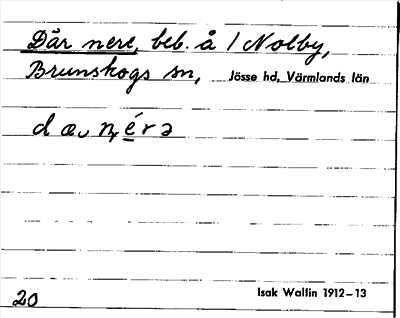 Där nere, beb. å 1 Nolby,
Brunskogs sn, Jösse hd, Värmlands län
dæ₍ ņérə
20 Isak Wallin 1912–13